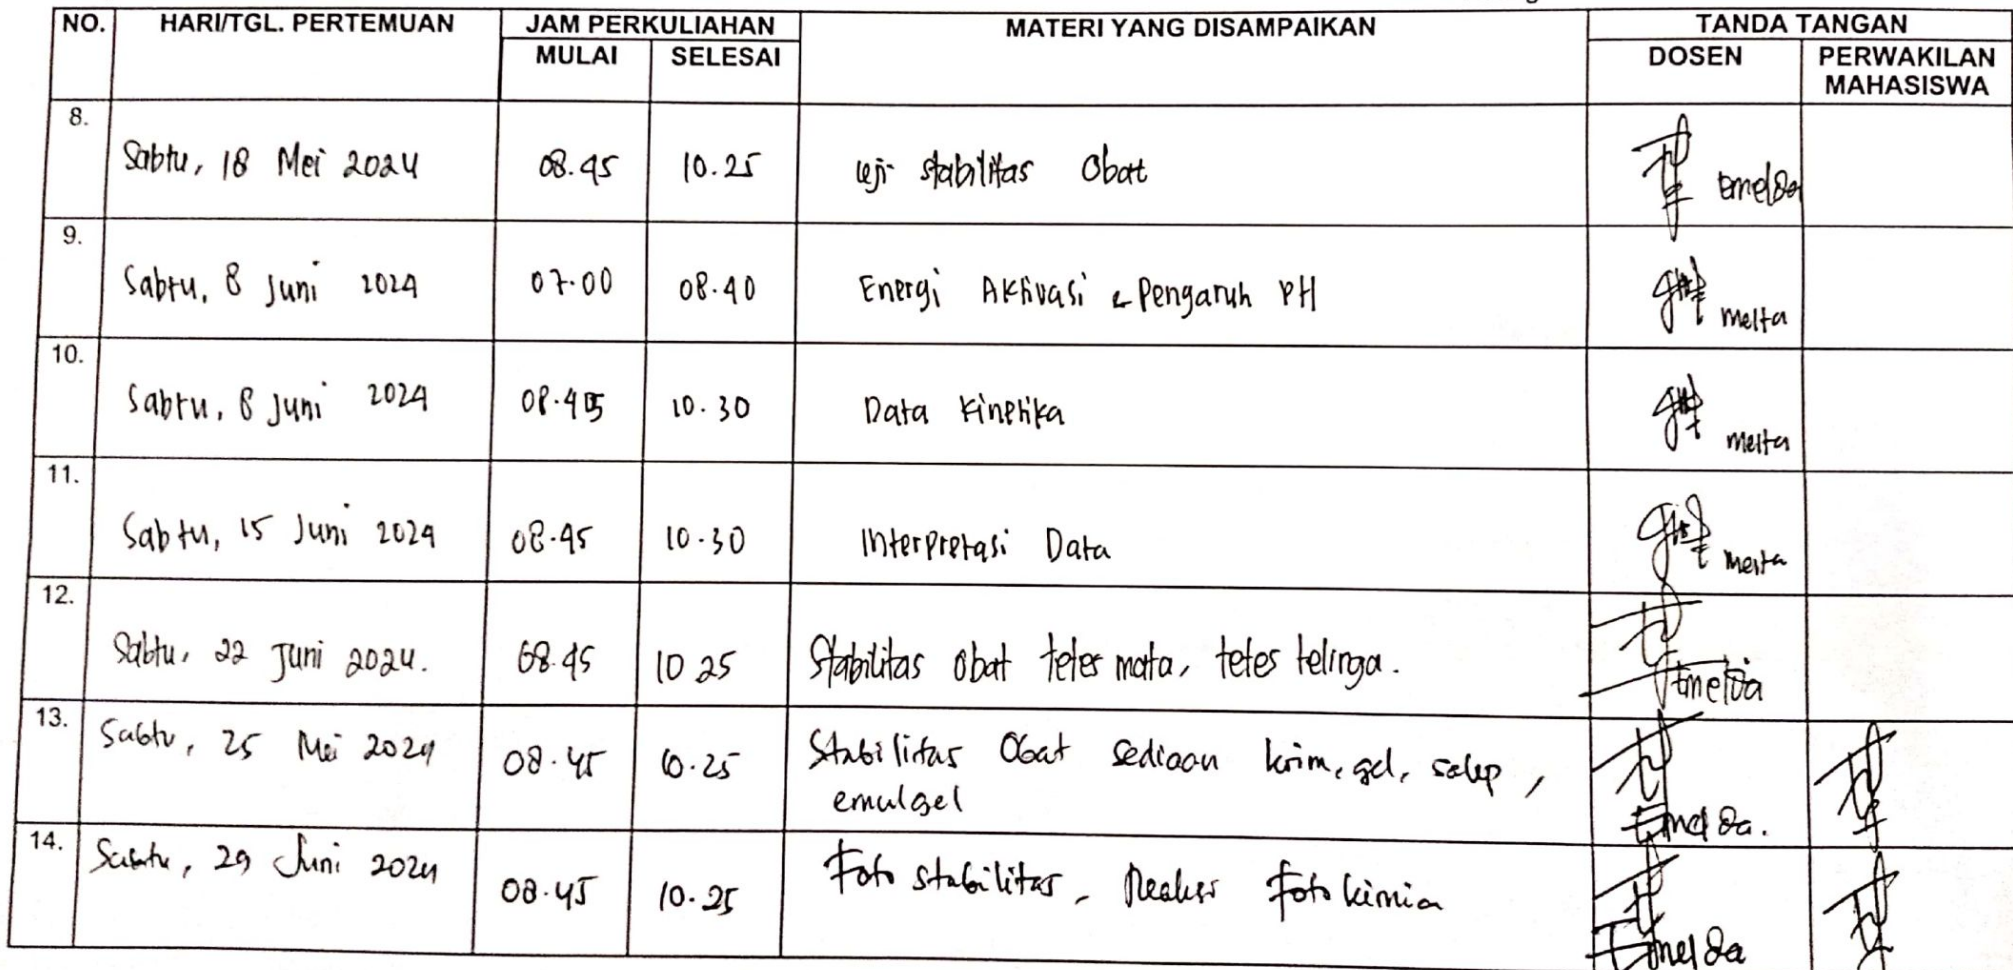 NO. HARI/TGL. PERTEMUAN JAM PERKULIAHAN MATERI YANG DISAMPAIKAN TANDA TANGAN
MULAI SELESAI DOSEN PERWAKILAN
MAHASISWA
8. Sabtu, 18 Mei 2024 08.45 10.25 Uji stabilitas Obat Emelda
9. Sabtu, 8 Juni 2024 07.00 08.40 Energi Aktivasi & Pengaruh PH Meita
10. Sabtu, 8 Juni 2024 08.45 10.30 Data Kinetika Meita
11. Sabtu, 15 Juni 2024 08.45 10.30 Interpretasi Data Meita
12. Sabtu, 22 Juni 2024. 08.45 10 25 Stabilitas obat tetes mata, tetes telinga. Emelda
13. Sabtu, 25 Mei 2024 08.45 10.25 Stabilitas Obat sediaan krim, gel, salep,
emulgel Emelda.
14. Sabtu, 29 Juni 2024 08.45 10.25 Foto stabilitas, Reaksi foto kimia Emelda